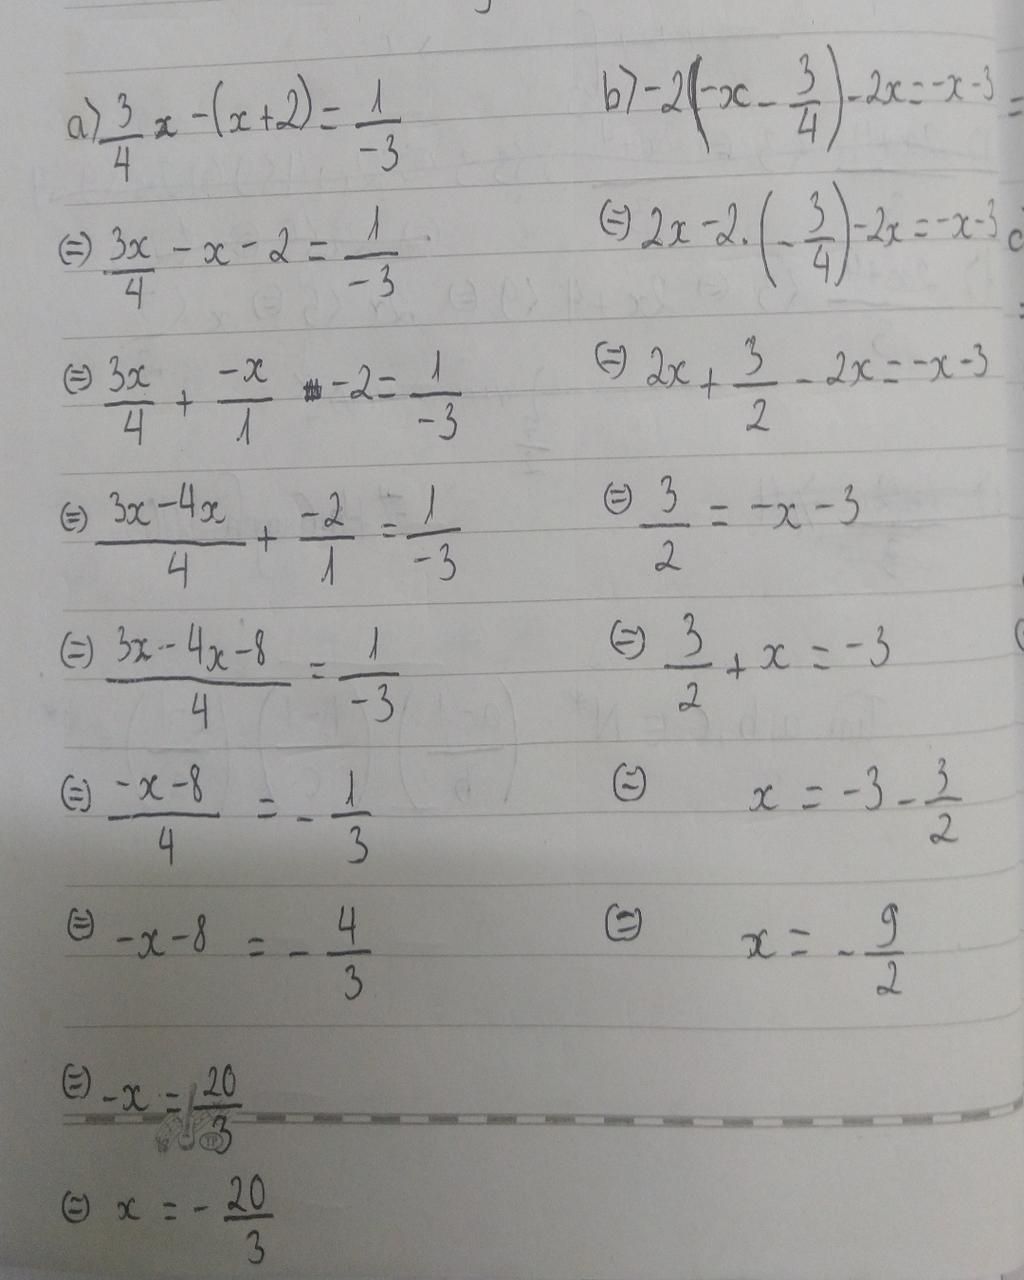 a) 3/4 x - (x+2) = 1/-3
(=) 3x/4 - x - 2 = 1/-3
(=) 3x/4 + -x/1 - 2 = 1/-3
(=) 3x-4x/4 + -2/1 = 1/-3
(=) 3x-4x-8/4 = 1/-3
(=) -x-8/4 = - 1/3
(=) -x-8 = - 4/3
(=) -x = 20/3
(=) x = - 20/3
b) -2(-x - 3/4) - 2x = -x-3
(=) 2x - 2.(- 3/4) - 2x = -x-3
(=) 2x + 3/2 - 2x = -x-3
(=) 3/2 = -x-3
(=) 3/2 + x = -3
(=) x = -3 - 3/2
(=) x = - 9/2